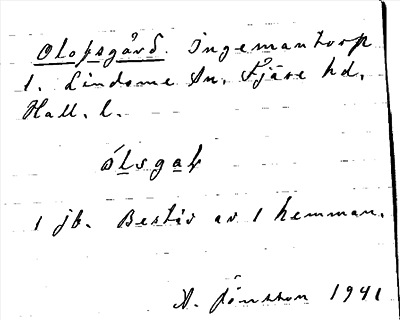 Olofsgård. Ingemantorp
1. Lindome sn. Fjäre hd.
Hall. l.
ólsgaʈ
1 jb. Består av 1 hemman.
A. Jönsson 1941